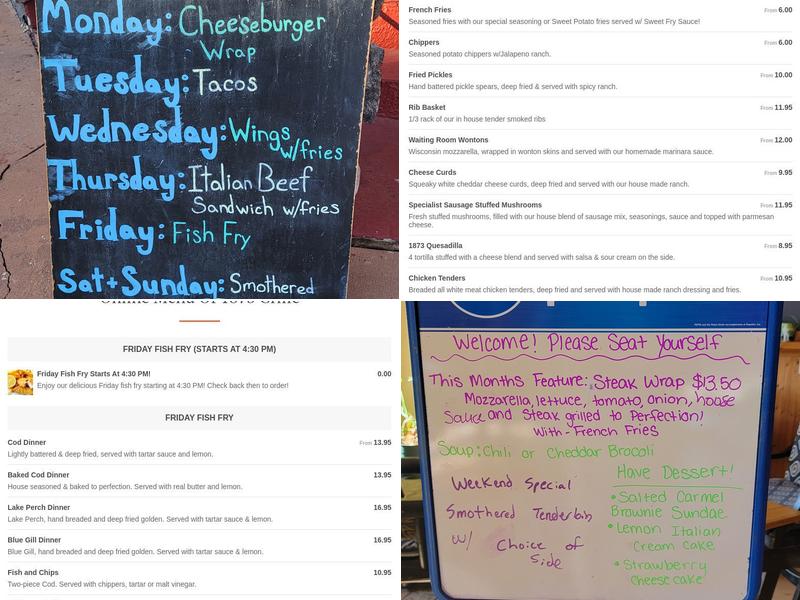 Monday: Cheeseburger
Wrap
Tuesday: Tacos
Wednesday: Wings
w/fries
Thursday: Italian Beef
Sandwich w/fries
Friday: Fish Fry
Sat+Sunday: Smothered
French Fries From 6.00
Seasoned fries with our special seasoning or Sweet Potato fries served w/ Sweet Fry Sauce!
Chippers From 6.00
Seasoned potato chippers w/Jalapeno ranch.
Fried Pickles From 10.00
Hand battered pickle spears, deep fried & served with spicy ranch.
Rib Basket From 11.95
1/3 rack of our in house tender smoked ribs
Waiting Room Wontons From 12.00
Wisconsin mozzarella, wrapped in wonton skins and served with our homemade marinara sauce.
Cheese Curds From 9.95
Squeaky white cheddar cheese curds, deep fried and served with our house made ranch.
Specialist Sausage Stuffed Mushrooms From 11.95
Fresh stuffed mushrooms, filled with our house blend of sausage mix, seasonings, sauce and topped with parmesan
cheese.
1873 Quesadilla From 8.95
4 tortilla stuffed with a cheese blend and served with salsa & sour cream on the side.
Chicken Tenders From 10.95
Breaded all white meat chicken tenders, deep fried and served with house made ranch dressing and fries.
Online Menu of 1873 Grille
FRIDAY FISH FRY (STARTS AT 4:30 PM)
Friday Fish Fry Starts At 4:30 PM! 0.00
Enjoy our delicious Friday fish fry starting at 4:30 PM! Check back then to order!
FRIDAY FISH FRY
Cod Dinner From 13.95
Lightly battered & deep fried, served with tartar sauce and lemon.
Baked Cod Dinner 13.95
House seasoned & baked to perfection. Served with real butter and lemon.
Lake Perch Dinner 16.95
Lake Perch, hand breaded and deep fried golden. Served with tartar sauce & lemon.
Blue Gill Dinner 16.95
Blue Gill, hand breaded and deep fried golden. Served with tartar sauce & lemon.
Fish and Chips 10.95
Two-piece Cod. Served with chippers, tartar or malt vinegar.
Welcome! Please Seat Yourself
This Months Feature: Steak Wrap $13.50
Mozzarella, lettuce, tomato, onion, house
Sauce and Steak grilled to Perfection!
With - French Fries
Soup: Chili or Cheddar Brocoli
Weekend Special
Smothered Tenderloin
w/ Choice of
Side
Have Dessert!
• Salted Carmel
Brownie Sundae
• Lemon Italian
Cream Cake
• Strawberry
Cheesecake